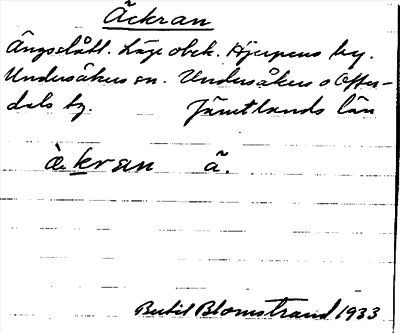 Äckran
Ängsslått. Läge obek. Hjerpens by.
Undersåkers sn. Undersåkers o Offer-
dals tg. Jämtlands län
ä̀kran ã.
Bertil Blomstrand 1933